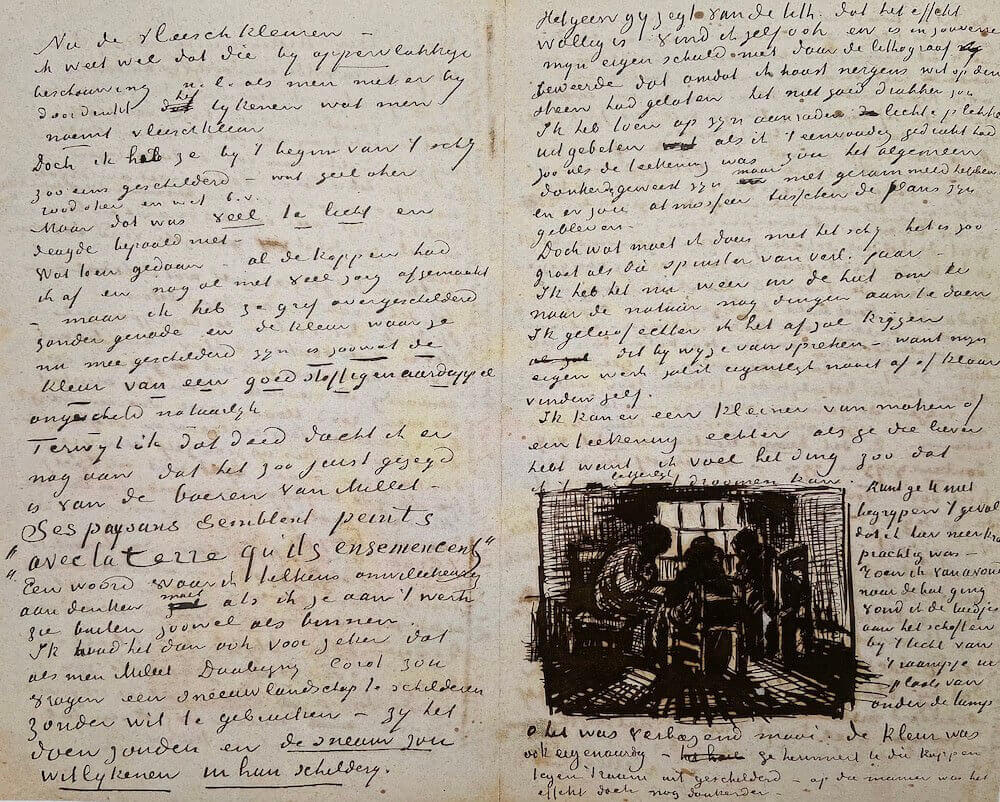 Nu de vleeschkleuren –
ik weet wel dat die by oppervlakkige
beschouwing n.l. als men niet er by
doordenkt hy lykenen wat men
noemt vleeschkleur
Doch ik heb ze by 't begin van 't schy
zoo eens geschilderd – wat geel oker
rood oker en wit b.v.
Maar dat was veel te licht en
deugde bepaald niet –
Wat toen gedaan – al de koppen had
ik af en nog al met veel zorg afgemaakt
– maar ik heb ze grif overgeschilderd
zonder genade en de kleur waar ze
nu mee geschilderd zyn is zoowat de
kleur van een goed stoffigen aardappel
ongescheld natuurlyk
Terwyl ik dat deed dacht ik er
nog aan dat het zoo juist gezegd
is van de boeren van Millet –
Ses paysans semblent peints
" avec la terre qu'ils ensemencent "
Een woord waar ik telkens onwillekeurig
aan denken moet als ik ze aan 't werk
zie buiten zoowel als binnen.
Ik houd het dan ook voor zeker dat
als men Millet Daubigny Corot zou
vragen een sneeuwlandschap te schilderen
zonder wit te gebruiken – zy het
doen zouden en de sneeuw zou
wit lykenen in hun schildery.
Hetgeen gy zegt van de lith. dat het effekt
wollig is vind ik zelf ook en is in zooverre
myn eigen schuld niet daar de lithograaf
beweerde dat omdat ik haast nergens wit op den
steen had gelaten het niet goed drukken zou
Ik heb toen op zyn aanraden lichte plekken
uit gebeten als ik 't eenvoudig gedrukt had
zoo als de teekening was zou het algemeen
donkerder geweest zyn maar niet gerammeld hebben
en er zou atmosfeer tusschen de plans zyn
gebleven –
Doch wat moet ik doen met het schy het is zoo
groot als die spinster van verl. jaar –
Ik heb het nu weer in de hut om te
naar de natuur nog dingen aan te doen
Ik geloof echter ik het af zal krygen
dit by wyze van spreken – want myn
eigen werk zal ik eigentlyk nooit af of klaar
vinden zelf.
Ik kan er een kleiner van maken of
een teekening echter als ge die liever
hebt want ik voel het ding zoo dat
ik 't letterlyk droomen kan.
Kunt ge U niet
begrypen 't geval
dat ik hier neerkras
prachtig was –
Toen ik van avond
naar de hut ging
vond ik de luidjes
aan het schoften
by 't licht van
't raampje in
plaats van
onder de lamp
o het was verbazend mooi. de kleur was
ook eigenaardig – ge herinnert u die koppen
tegen 't raam uit geschilderd – op die manier was het
effekt doch nog donkerder –